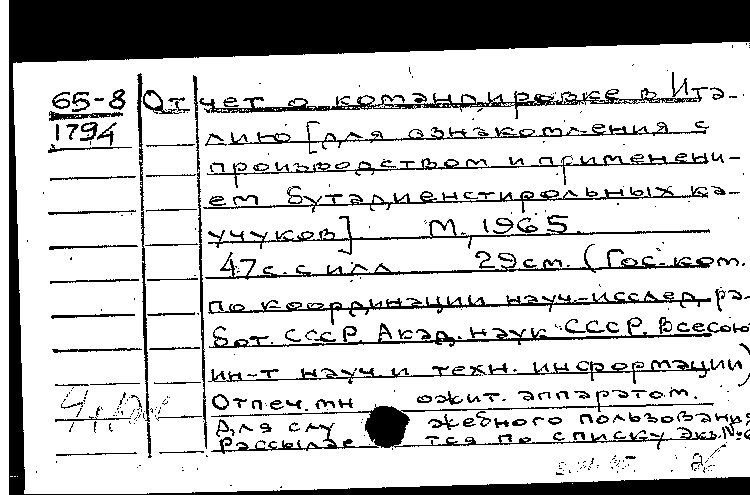 65-8 Отчет о командировке в Ита-
1794 лию [для ознакомления с
производством и применени-
ем бутадиенстирольных ка-
учуков] М., 1965.
47с. с илл 29см. (Гос. ком.
по координации науч.-исслед. ра-
бот. СССР. Акад. наук СССР. Всесоюз
ин-т науч. и техн. информации)
Отпеч. мн ожит. аппаратом.
Для слу жебного пользования
Рассылае тся по списку Экз. №
26